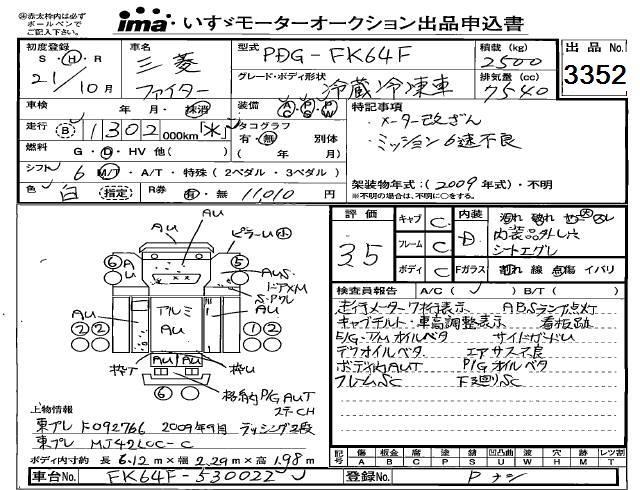 ※赤太枠内は必ず
ボールペンで
ご記入下さい。
ima いすゞモーターオークション出品申込書
初度登録 S・H・R 21/10月
車名 三菱 ファイター
型式 PDG-FK64F
グレード・ボディ形状 冷蔵冷凍車
積載(kg) 2500
排気量(cc) 7540
出品No. 3352
車検 年・月・抹消
装備 AC PS PW
特記事項
走行 B 1302 000km 米
タコグラフ 有・無 別体 (年 月)
・メーター改ざん
・ミッション6速不良
燃料 G・D・HV 他( )
シフト 6 M/T・A/T・特殊(2ペダル・3ペダル)
架装物年式:(2009年式)・不明
※不明の場合は、不明に○をする。
色 白 指定 R券 有・無 11010円
評価 3.5
キャブ C
フレーム C
ボディ C
内装 D
内装品外し穴
シートエグレ
Fガラス 割れ 線 点傷 イバリ
検査員報告 A/C( ) B/T( )
走行メーター7桁表示 ABSランプ点灯
キャブチルト・車高調整表示 看板跡
E/G・T/Mオイルベタ サイドガードU
デフオイルベタ エアサス不良
ボディ内AUT P/Gオイルベタ
フレームSC 下廻りSC
AU
ピラーU小
6 AU 5
AUS
ドアXM
S・Pワレ
AU アルミ AU AU
2 2 1 2
AU AU
枠T 枠U
6
格納P/G AUT
ステーCH
上物情報
東プレ F092766 2009年9月 ラッシング2段
東プレ MJ42LCC-C
ボディ内寸約 長 6.12m×幅 2.29m×高 1.98m
記号 傷 A 板金 B 腐 C 塗 P 錆 S 凹凸曲 U 波 W 穴 H 跡 M レンズ割 T
車台No. FK64F-530022
登録No. Pナシ